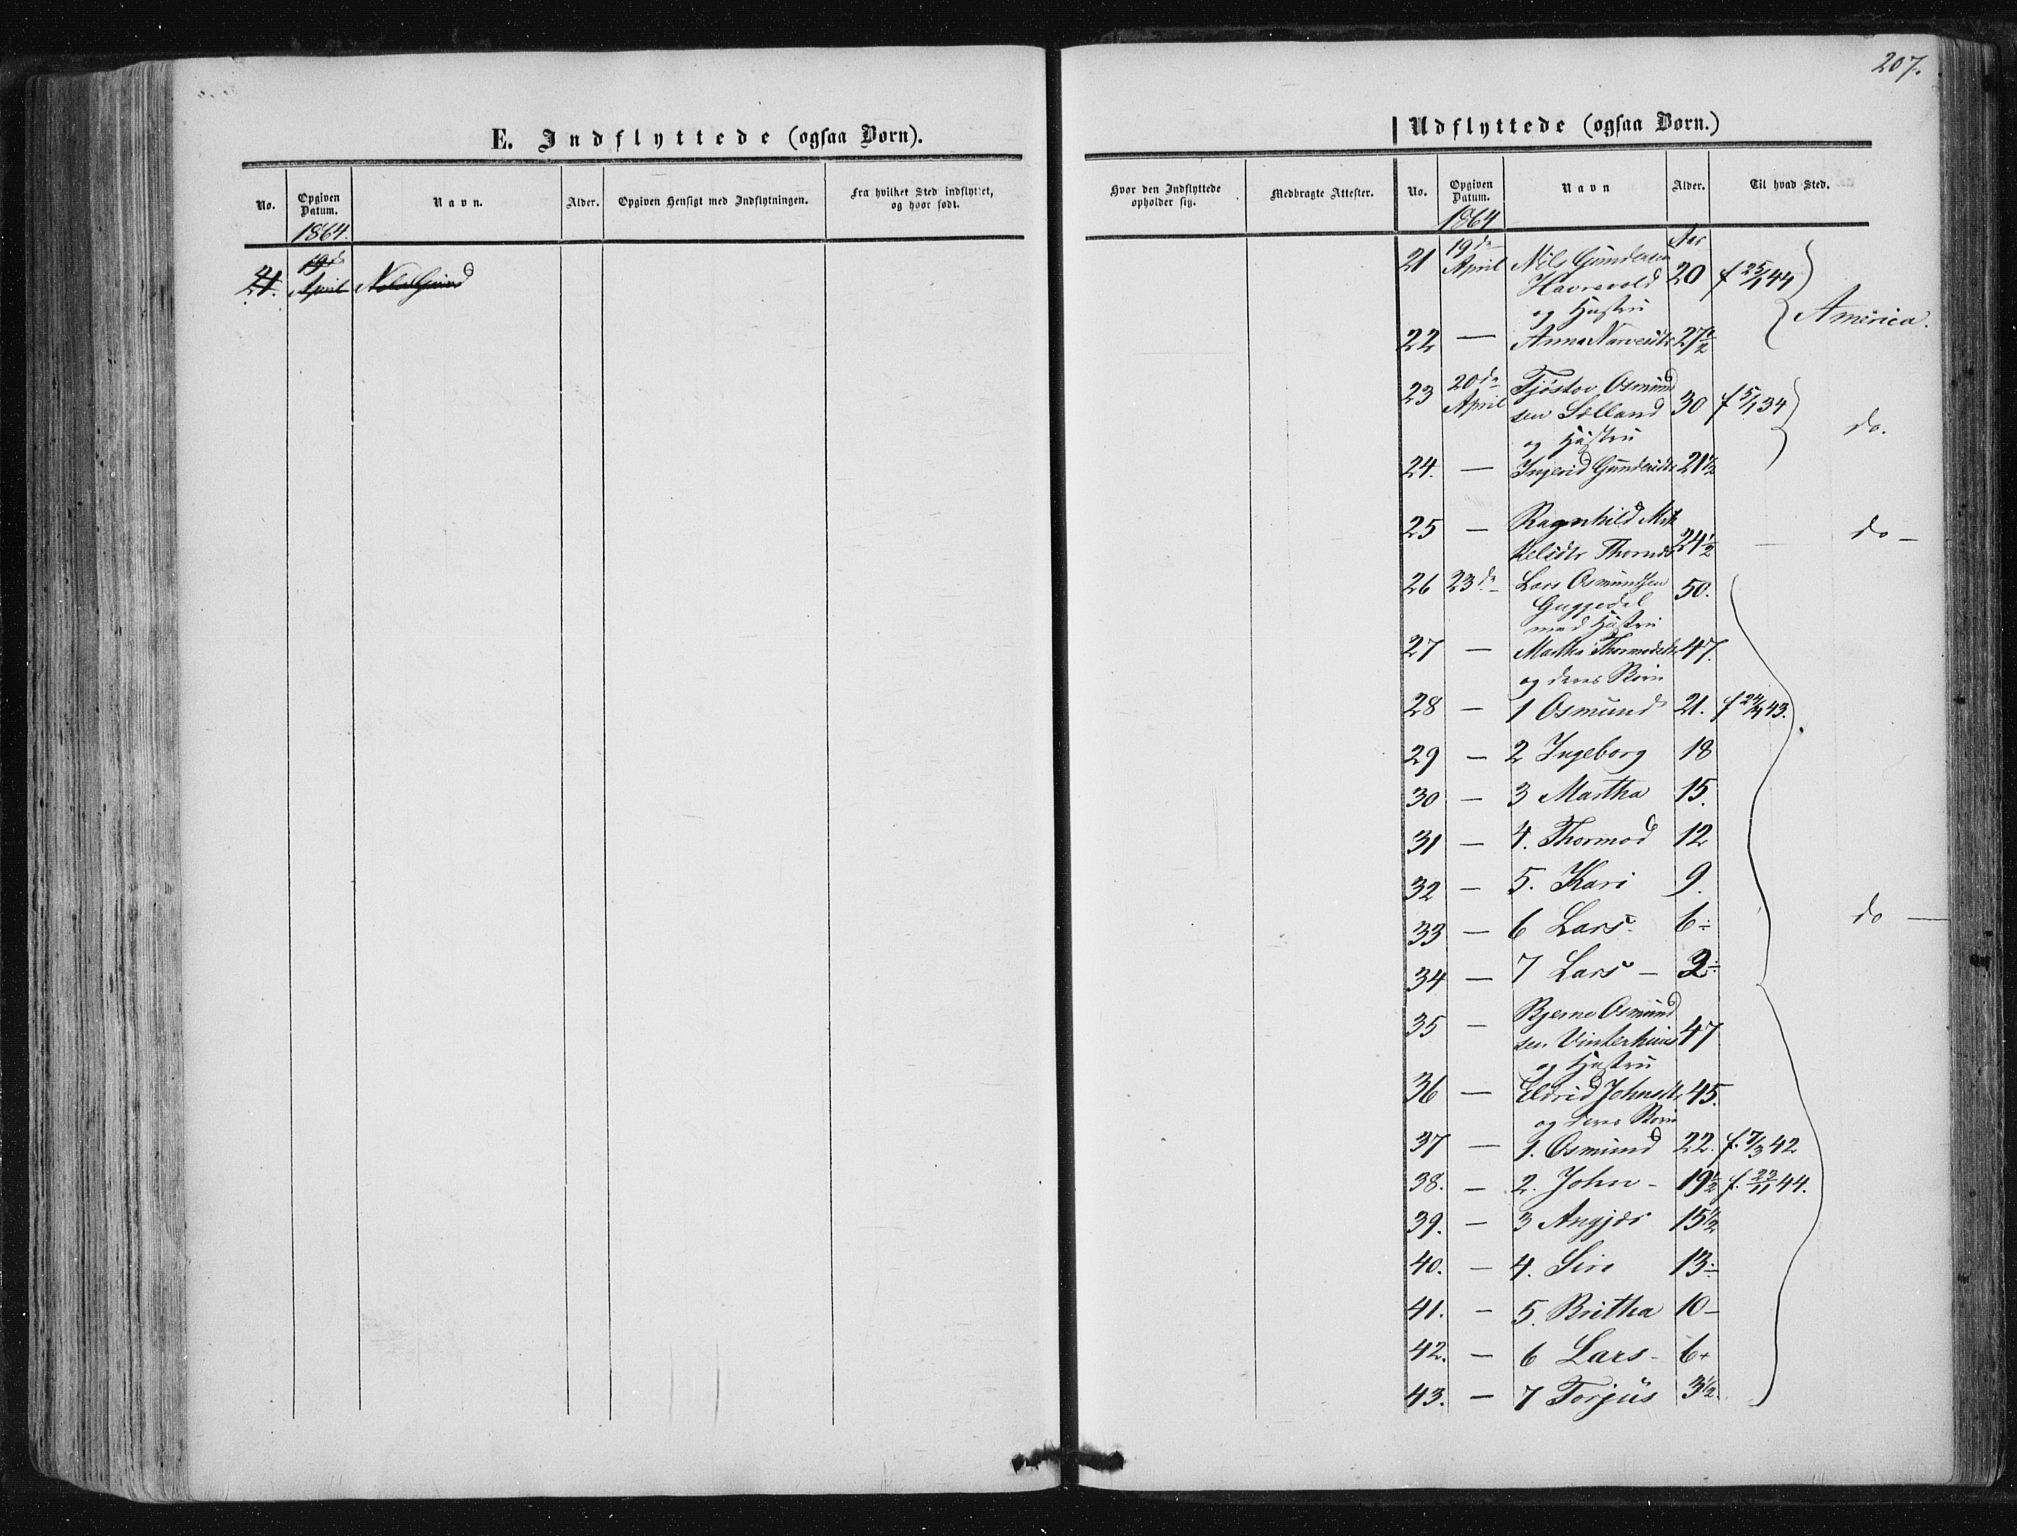 207.
E. Indflyttede (ogsaa Børn).
No. Opgiven Datum. Navn. Alder. Opgiven Hensigt med Indflytningen. Fra hvilket Sted indflyttet, og hvor født.
1864.
21. 19de April Nils Gund
Udflyttede (ogsaa Børn.)
Hvor den Indflyttede opholder sig. Medbragte Attester. No. Opgiven Datum. Navn Alder. Til hvad Sted.
1864
Aar
21 19de April Nils Gundersen
Havrevold 20 f 25/1 44
og Hustru
America.
22 — Anna Narvesdtr 27 1/2
23 20de April Tjøstov Osmund
sen Sælland 30 f 5/1 34
og Hustru
do.
24. — Ingerid Gundersdtr 21 1/2
25 — Ragnhild Mik
kelsdtr 24 1/2 — do —
26 23de — Lars Osmundsen 50.
Guggedal
med Hustru
27 — Martha Thormodsdtr 47.
og deres Børn
28 — 1 Osmund 21. f 24/4 43.
29 — 2 Ingeborg 18
30 — 3 Martha 15.
31 — 4. Thormod 12
32 — 5. Kari 9.
33 — 6 Lars. 6 do —
34 — 7 Lars — 2
35 — Bjerne Osmund
sen Vinterhuus 47
og Hustru
36 — Eldrid Johnsdtr 45.
og deres Børn
37 — 1. Osmund 22. f. 7/3 42
38. — 2. John — 19 1/2 f. 23/11 44.
39. — 3 Angjær 15 1/2
40. — 4. Siri 13
41. — 5. Britha 10 —
42. — 6 Lars — 6
43. — 7 Torjus 3 1/2.